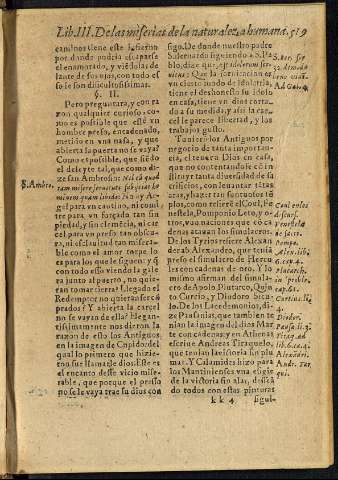 Lib. III. De las miserias de la naturaleza humana. 519
caminos tiene este Infierno
por donde podria escaparse
el enamorado, y viédolas de
lante de sus ojos, con todo es
so le son dificultosissimas.
§. II.
Pero preguntara, y con ra
zon qualquier curioso, co-
mo es possible que esté vn
hombre preso, encadenado,
metido en vna nasa, y que
abierta la puerta no se vaya?
Como es possible, que siédo
el deleyte tal, que como di-
ze san Ambrosio: Nihil est quod
tam miserè
miserum quam libido: No ay Ar-
gel para vn cautiuo, ni comi-
tre para vn forçado tan sin
piedad, y sin clemécia, ni car
cel para vn preso tan obscu-
ra, ni esclauitud tan misera-
ble como el amor torpe lo
es para los que le siguen: y q̃
con todo esso viendo la gale
ra junto al puerto, no quie-
ran tomar tierra? Llegado el
Redemptor no quieran ser cõ
prados? Y abierta la carcel
no se vayan della? Elegan-
tissimamente nos dieron la
razon de esto los Antiguos,
en la imagen de Cupido: del
qual lo primero que hizie-
ron fue llamarle dios. Este es
el encanto deste vicio mise-
rable, que porque el preso
no se le vaya trae su dios con
sigo. De donde nuestro padre
S. Bernardo siguiendo a S. Pa-
blo, dize que, es idolorum ser-
uitus: Que la fornicacion es
vn cierto modo de Idolatria,
tiene vn cielo fundado en el
casa, tiene vn dios corta-
do a su medida, y assi la car-
cel le parece libertad, y los
trabajos gusto.
Tuuieron los Antiguos por
negocio de tanta importan-
cia, el tener a Dios en casa,
que no contentandose cõ in-
sistir tanta diuersidad de sa-
crificios, con leuantar tãtas
aras, y hazer tan suntuosos tẽ-
plos, como refiere el Coul, Pe
nestela, Pomponio Leto, y o-
tros, vuo naciones que co ca
denas atauan los simulacros.
De los Tyrios refiere Alexan
der ab Alexandro, que tenia
preso el simulacro de Hercu
les con cadenas de oro. Y lo
mismo afirman del simula-
cro de Apolo, Plutarco, Quin
to Curcio, y Diodoro Sicu-
lo. De los Lacedemonios, di-
ze Pausanias, que tambien te
nian la imagen del dios Mar
te con cadenas: y en Athenas
escriue Andreas Tiraquelo,
que tenian la victoria sin plu
mas. Y Calamides hizo para
los Mantinienses vna efigie
de la victoria sin alas, dãdo ā
do todos con estas pinturas
kk 4 sigui-
S. Ambro.
S. Ber. ser
Ad Gal. 4
Coul en los
discurs.
de sacr.
Alex. li.
4. c.
Plutarch.
in proble.
cap. 61.
Curtius li.
4.
Diodor.
Pausa. li. 3.
Tiraq. ad
lib. 6. ca. 4.
Alexãdri.
Andr. Tir.